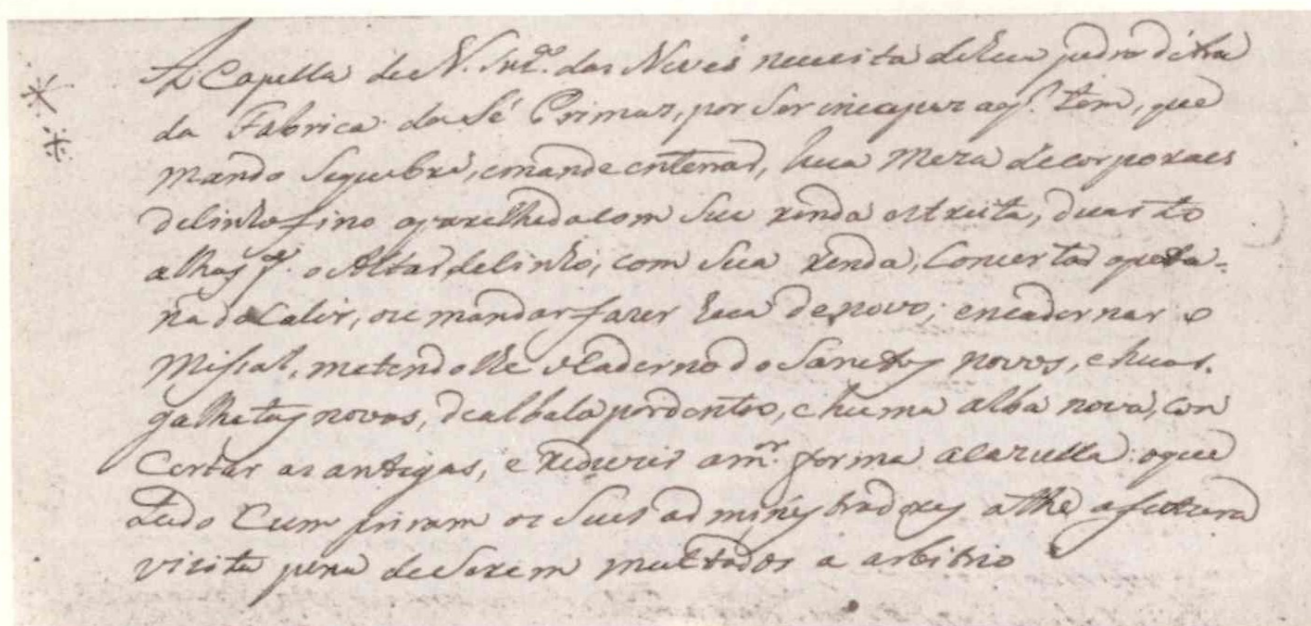 A Capella de N. Snr.ª das Neves necesita de hua pedra d'Ara
da Fabrica da Sé Primas, por ser incapas aq.' tem, que
mando sequebre, emande enterrar, hua Meza de corporaes
delinho fino aparelhada com sua renda estreita, duas to
alhas p.ª o Altar delinho, com sua renda, Concertar apeta-
na do Calix, ou mandar fazer hua de novo; encadernar o
Missal, metendolhe o Caderno do Sanctos novos, e huas
galhetas novas, dealbala pordentro, e huma alba nova, con
Certar as antigas, e reduzir a m.or forma acazulla oque
tudo Cumpriram os Seus administradores athe afutura
visita pena deserem multados a arbitrio